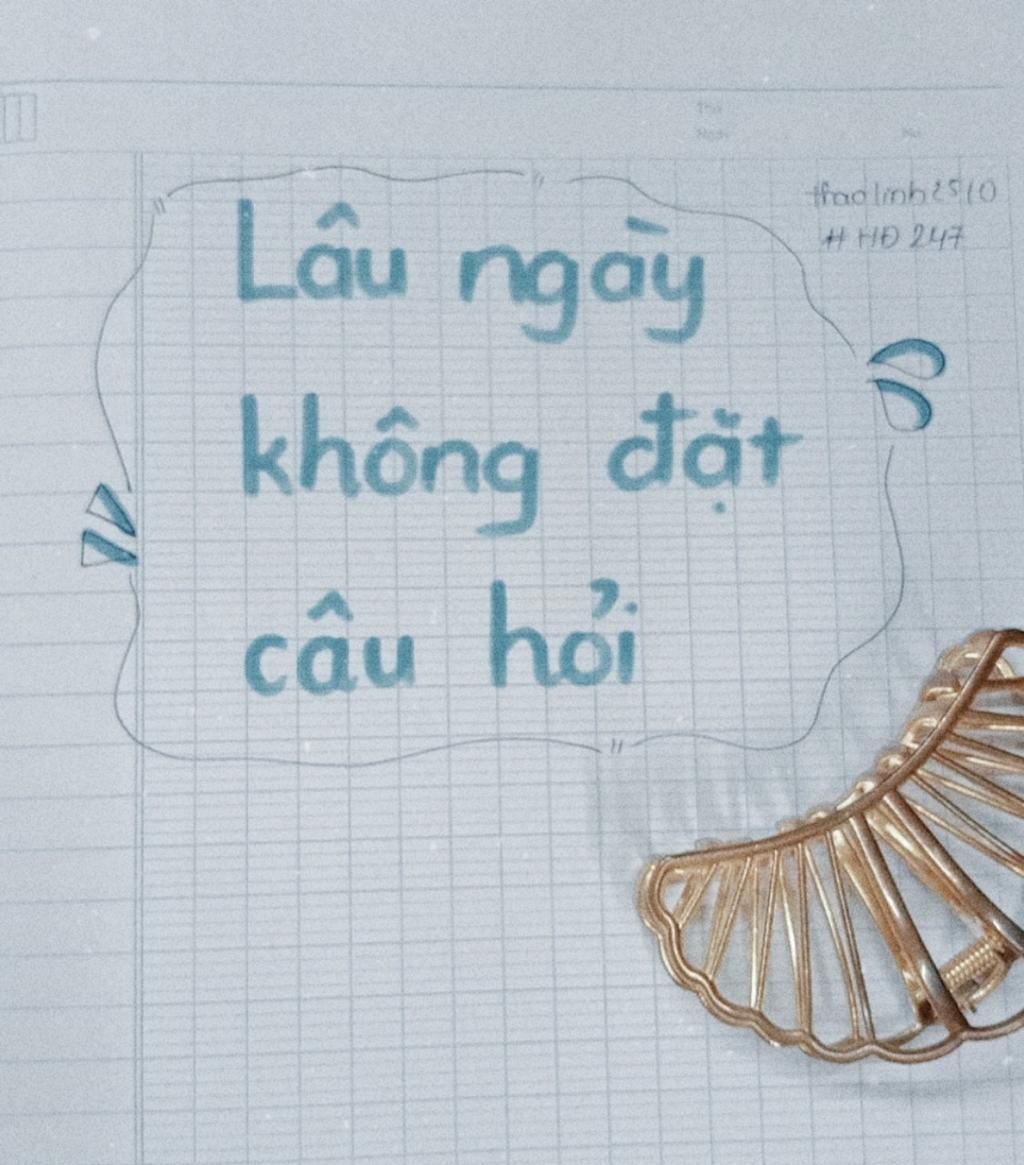 thaolinh2510
# HĐ 247
Lâu ngày
không đặt
câu hỏi